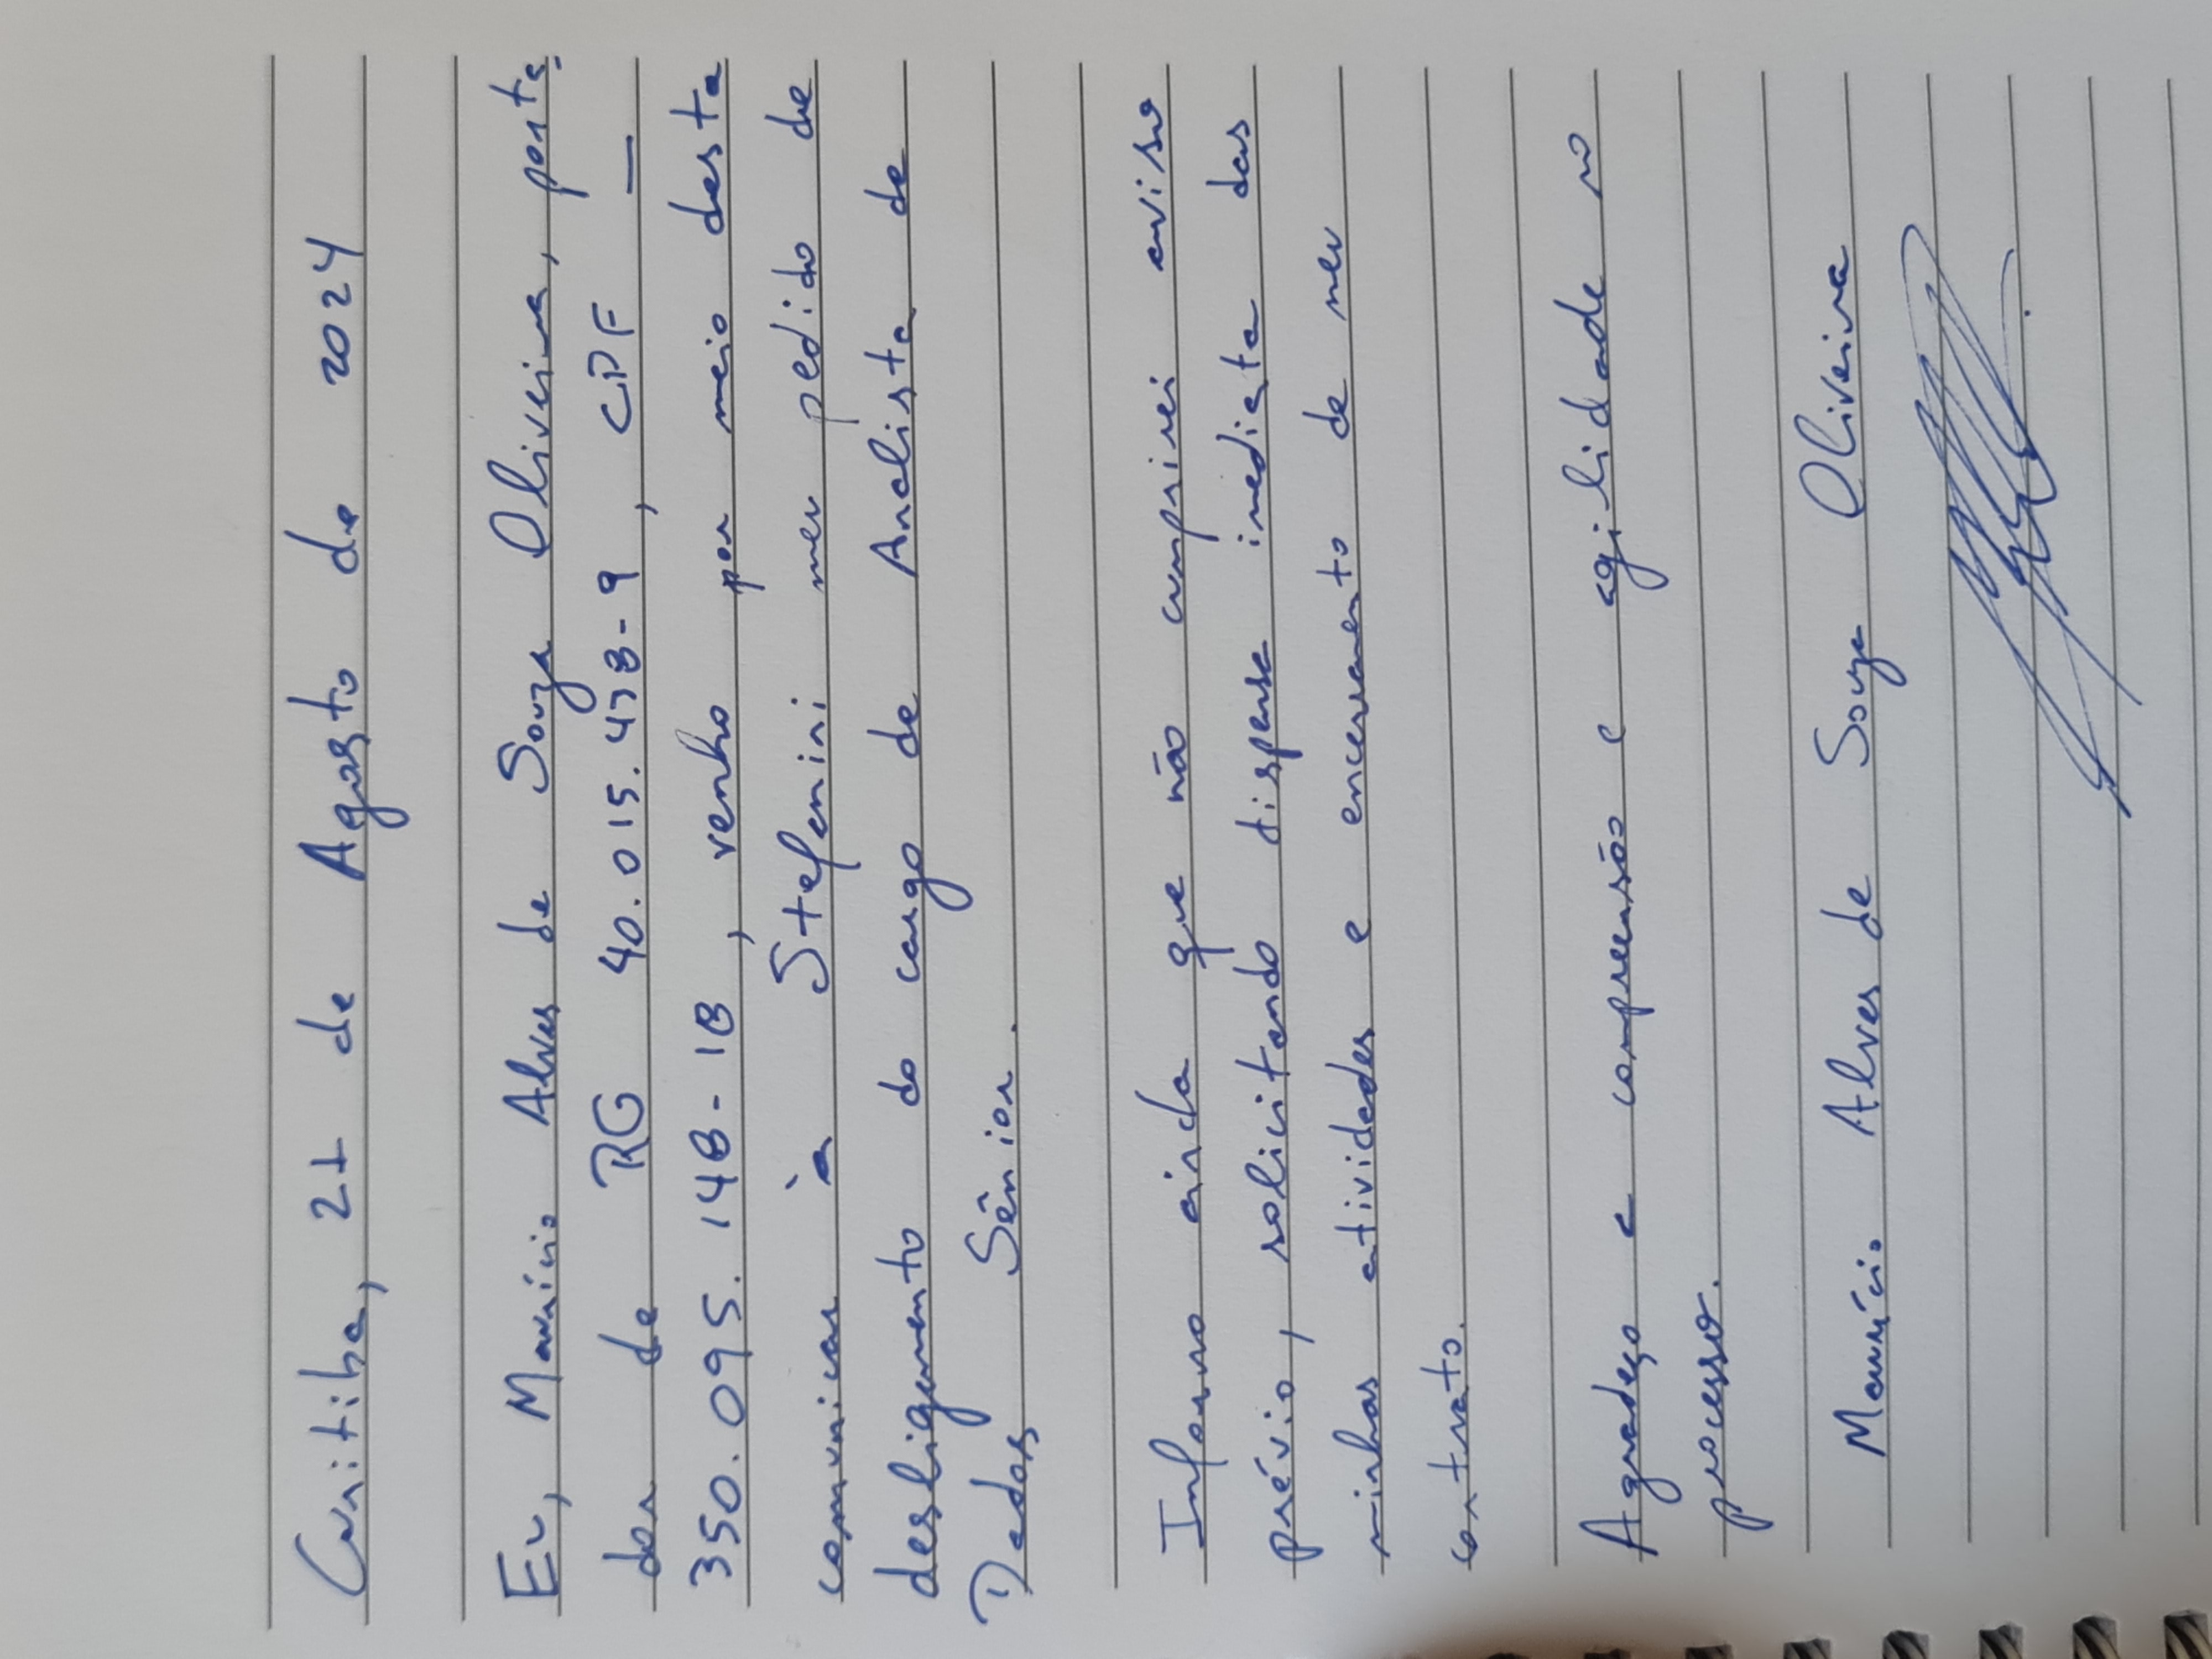 Curitiba, 21 de Agosto de 2024
Eu, Maurício Alves de Souza Oliveira, porta-
dor de RG 40.015.478-9, CPF —
350.095.148-18, venho por meio desta
comunicar à Stefanini meu pedido de
desligamento do cargo de Analista de
Dados Sênior.
Informo ainda que não cumprirei aviso
prévio, solicitando dispensa imediata das
minhas atividades e encerramento de meu
contrato.
Agradeço a compreensão e agilidade no
processo.
Maurício Alves de Souza Oliveira